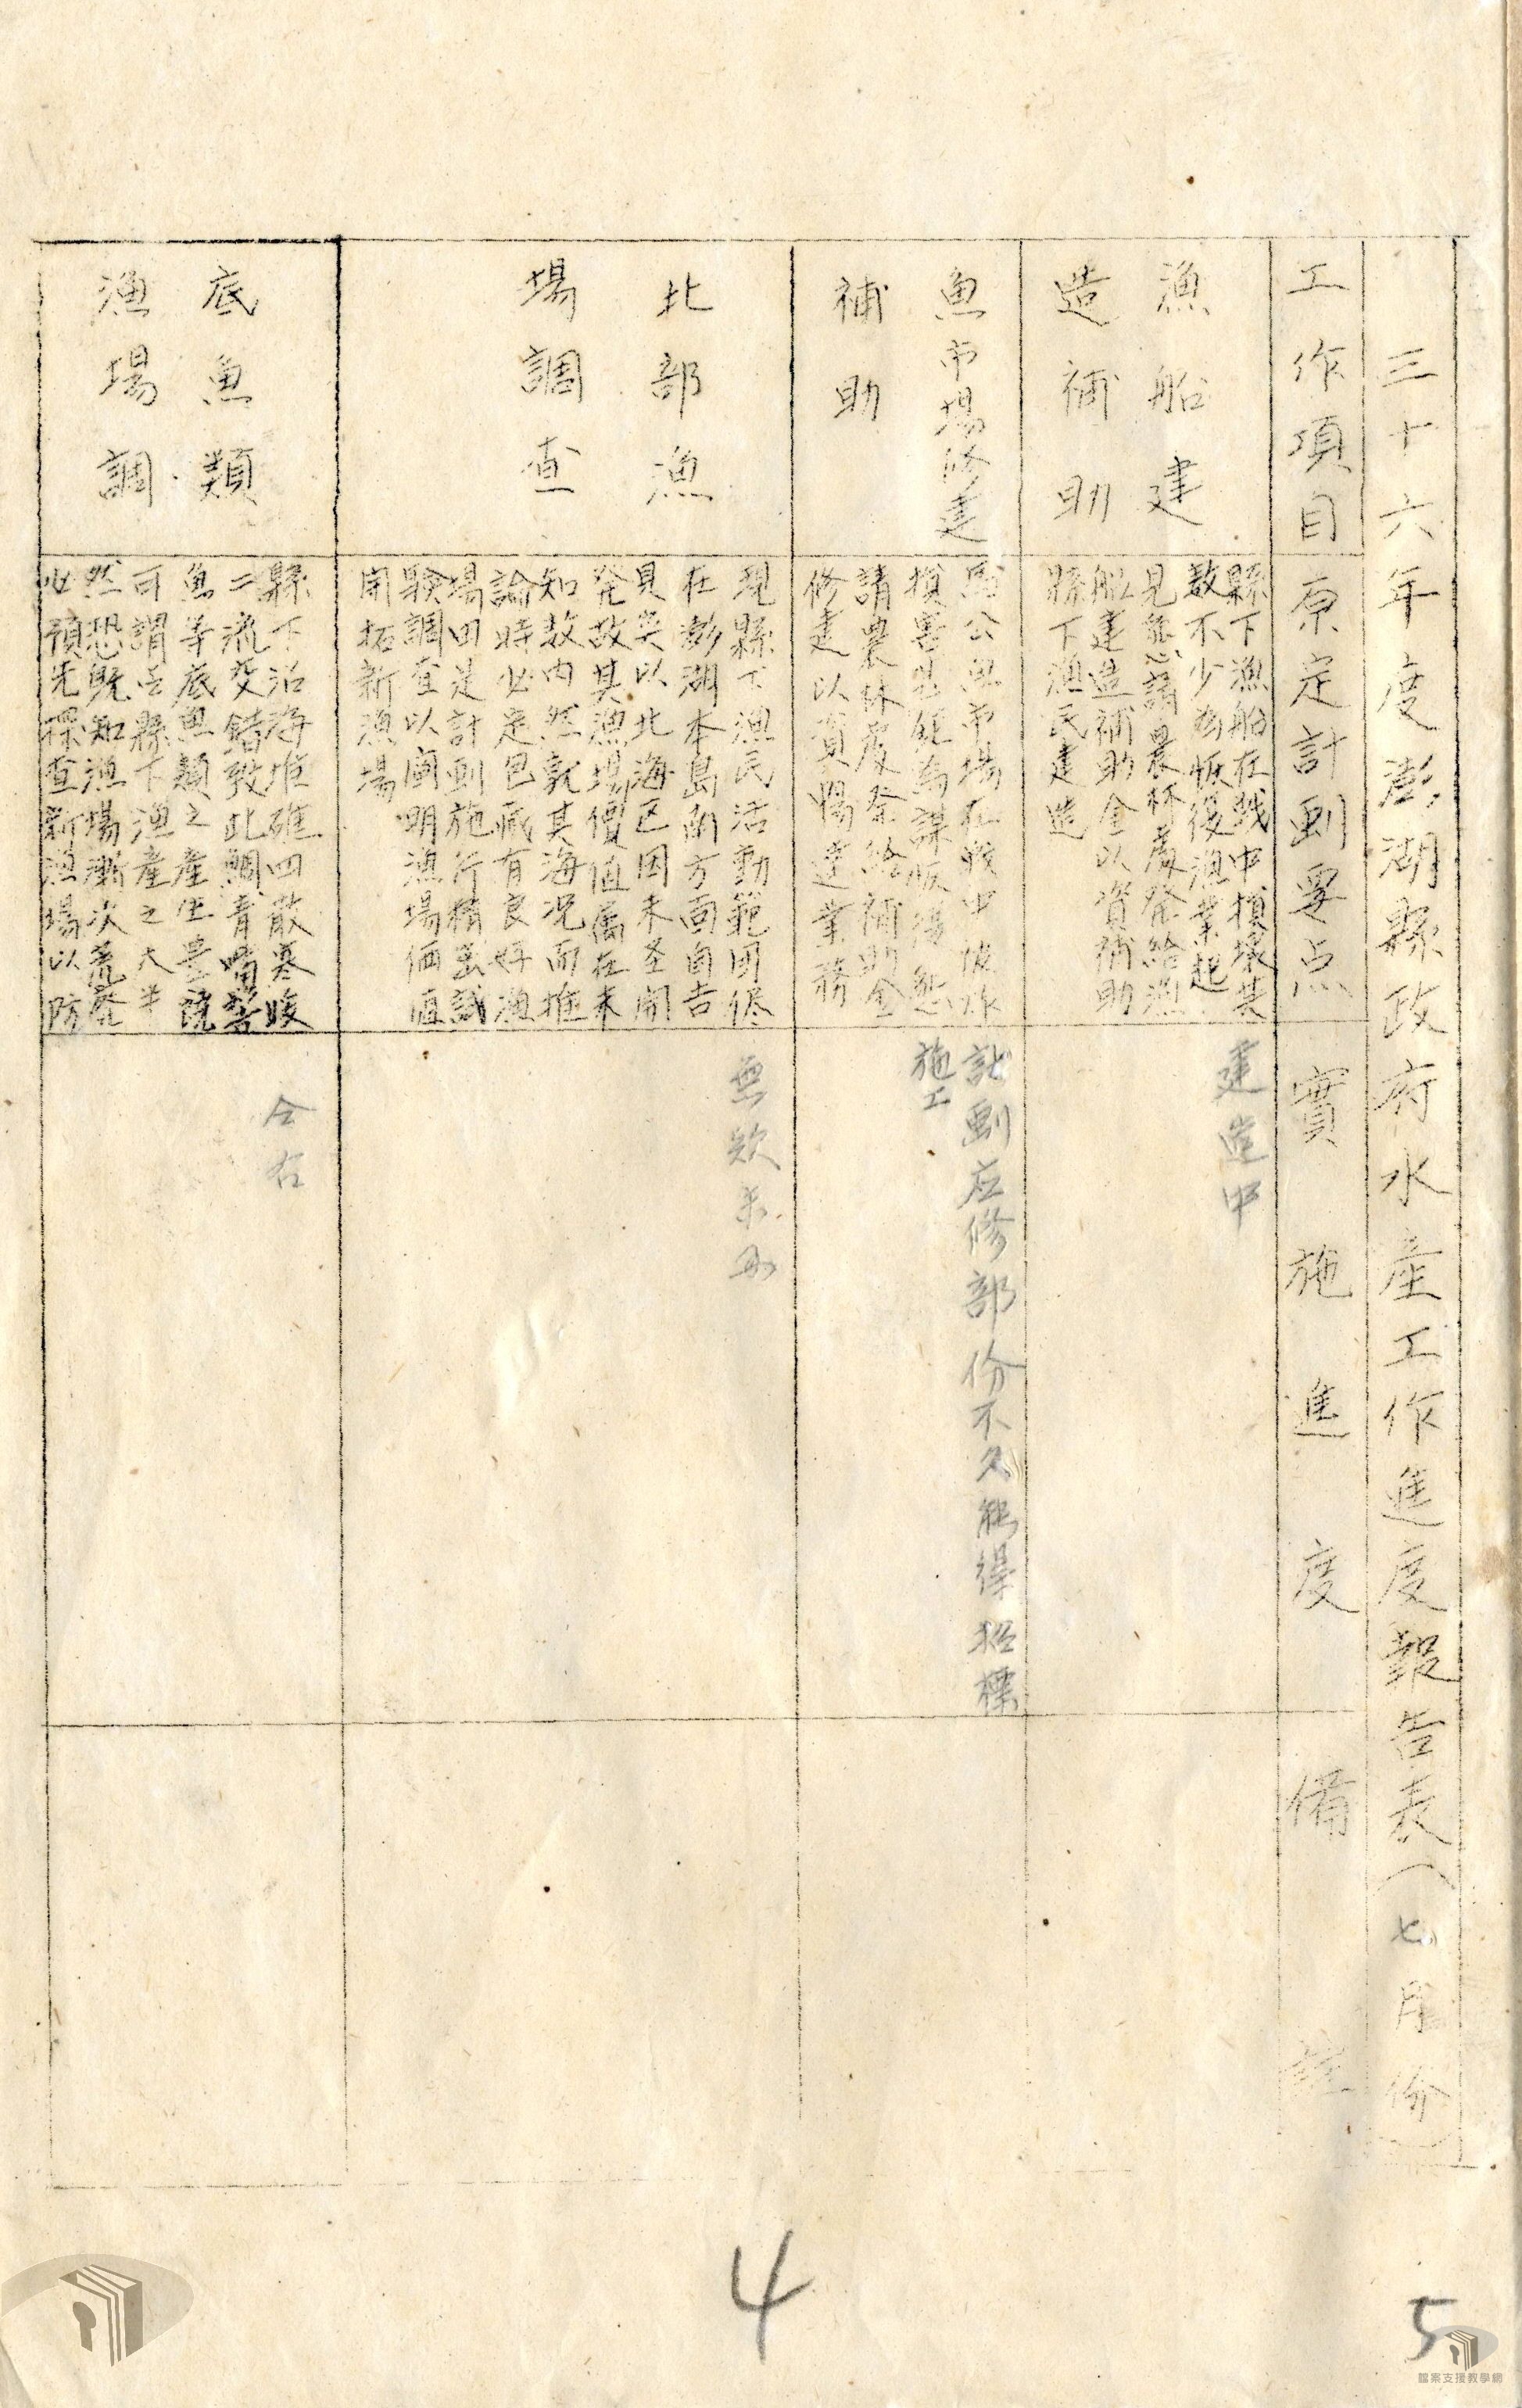 三十六年度澎湖縣政府水產工作進度報告表(七月份)
工作項目
原定計劃要点
實施進度
備註
漁船建
造補助
縣下漁船在戰中損壞其
数不少為恢復漁業起
見懇請農林處發給漁
船建造補助金以資補助
縣下漁民建造
建造中
魚市場修建
補助
馬公魚市場在戰中被炸
損害
請農林處發給補助金
修建以資暢達業務
計劃应修部份不久能得招標
施工
北部漁
場調查
現縣下漁民活動範囲侭
在澎湖本島南方面自古
見矣以北海区因未圣開
発故其漁場價值属在未
知数内然就其海况而推
論時必定包藏有良好漁
場田是計劃施行精密試
験調查以闡明漁場価值
開拓新漁場
無欵未办
底魚類
漁場調
縣下沿海堆礁四散寒暖
二流交錯致此鯛青嘴
魚等底魚類之產生豊
可謂呂縣下漁產之大半
然恐既知漁場漸次荒廃
必預先探查新漁場以防
仝右
4
5
檔案支援教學網